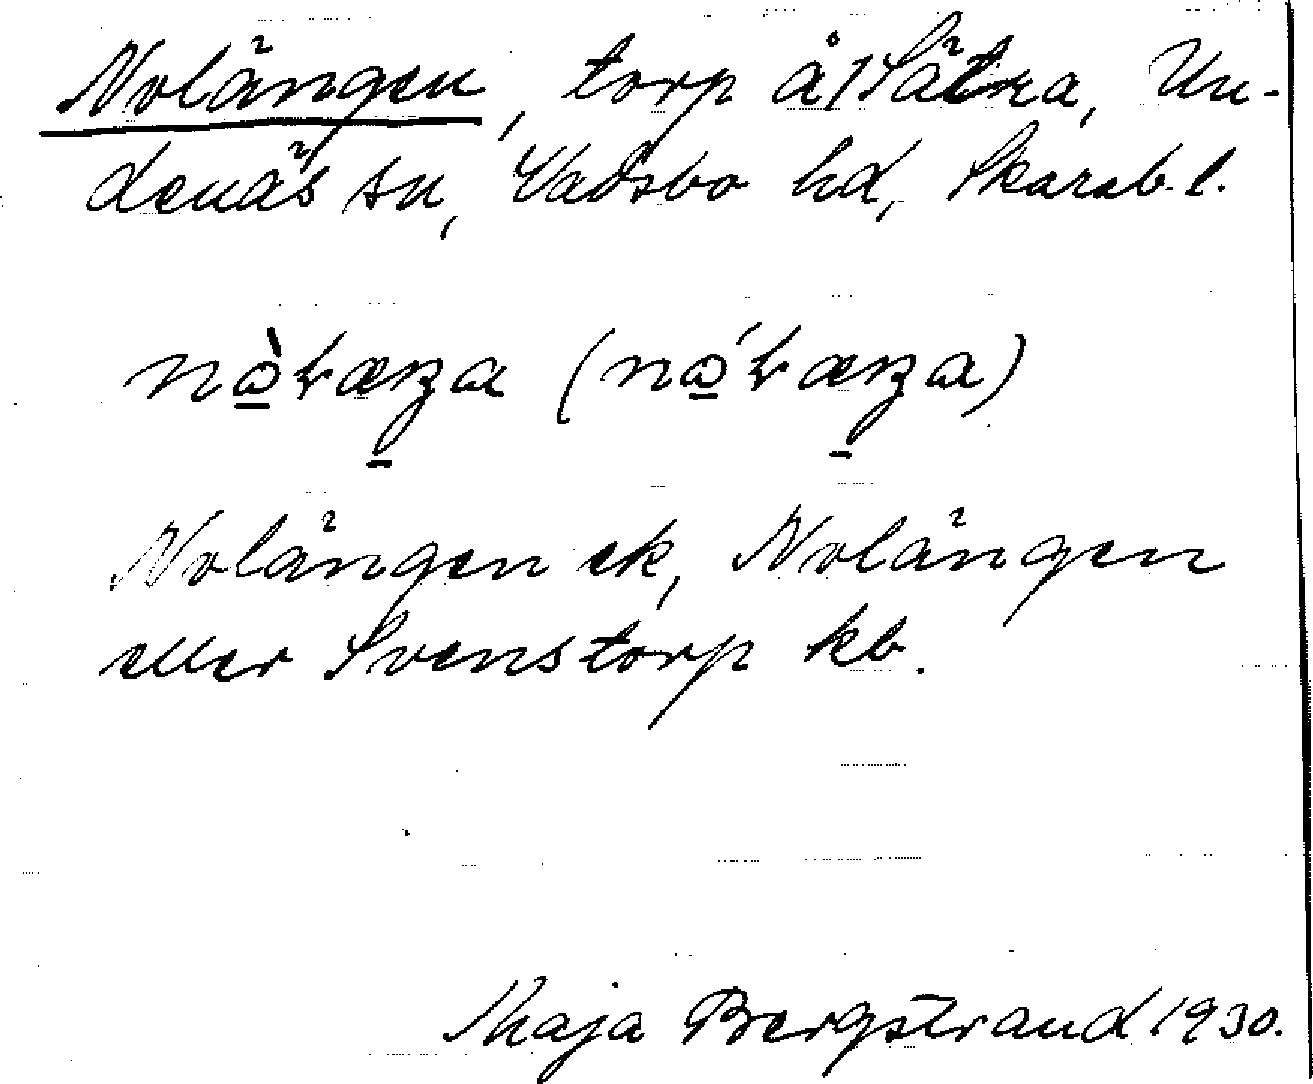 Nolängen, torp å/Sätra, Un-
denäs sn, Vadsbo hd, Skarab. l.
Nolängen ek, Nolängen
eller Svenstorp kb.
Maja Bergstrand 1930.